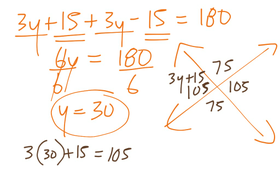 3y + 15 + 3y - 15 = 180
6y = 180
6 6
y = 30
3(30) + 15 = 105
75
3y+15
105
105
75